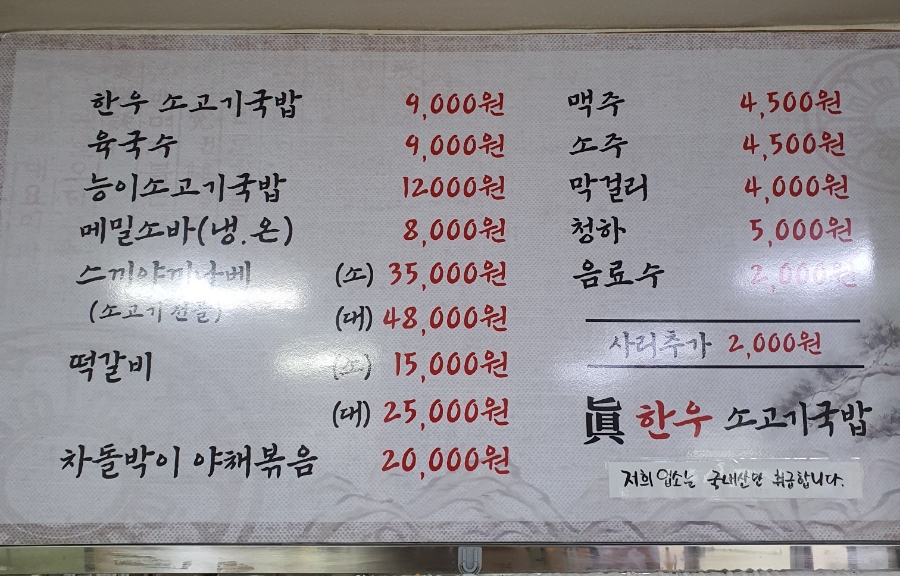 한우 소고기국밥 9,000원
육국수 9,000원
능이소고기국밥 12000원
메밀소바(냉.온) 8,000원
스끼야끼나베 (소) 35,000원
(소고기전골) (대) 48,000원
떡갈비 (소) 15,000원
(대) 25,000원
차돌박이 야채볶음 20,000원
맥주 4,500원
소주 4,500원
막걸리 4,000원
청하 5,000원
음료수 2,000원
사리추가 2,000원
眞 한우 소고기국밥
저희 업소는 국내산만 취급합니다.